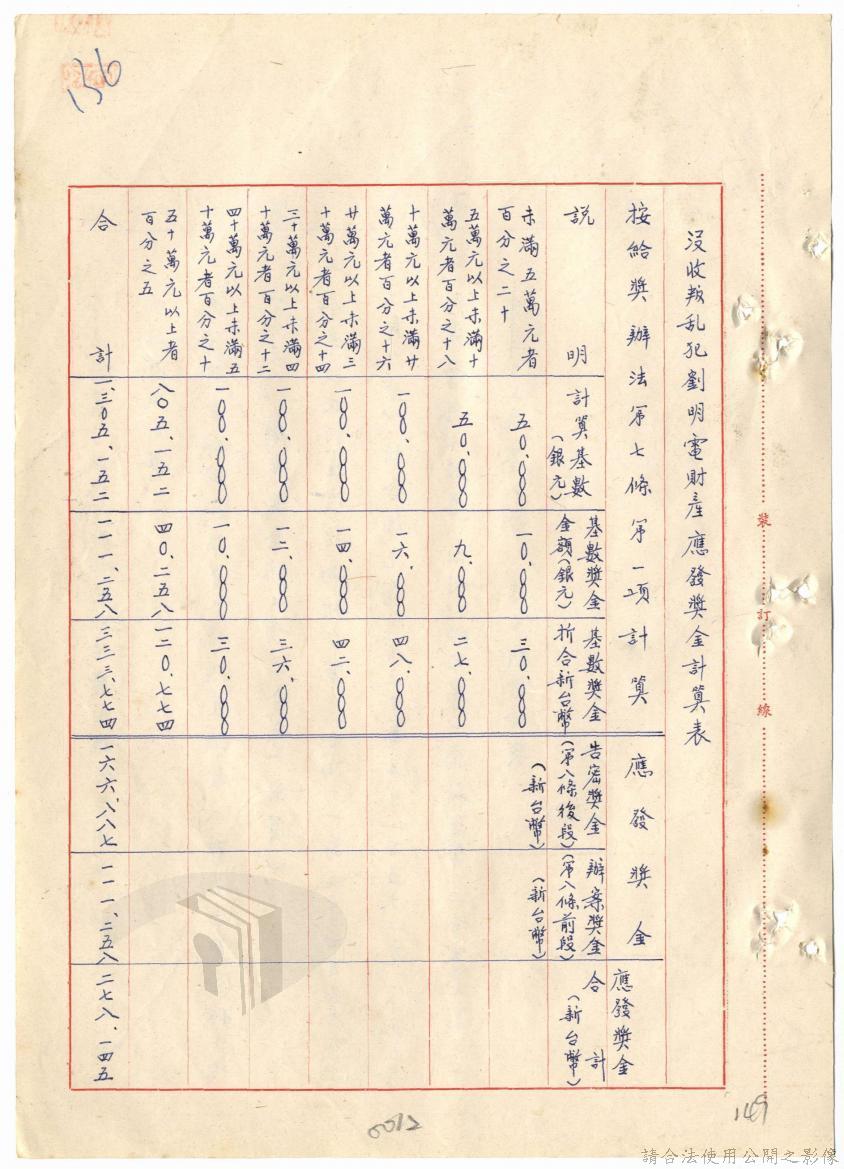 沒收叛乱犯劉明電財產應發獎金計算表
按給獎辦法第七條第一項計算
應發獎金
應發獎金合計(新台幣)
說明
計算基數(銀元)
基數獎金金額(銀元)
基數獎金折合新台幣
告密獎金(第八條後段)(新台幣)
辦案獎金(第八條前段)(新台幣)
未滿五萬元者
百分之二十
五〇、〇〇〇
一〇、〇〇〇
三〇、〇〇〇
五萬元以上未滿十
萬元者百分之十八
五〇、〇〇〇
九、〇〇〇
二七、〇〇〇
十萬元以上未滿廿
萬元者百分之十六
一〇〇、〇〇〇
一六、〇〇〇
四八、〇〇〇
廿萬元以上未滿三
十萬元者百分之十四
一〇〇、〇〇〇
一四、〇〇〇
四二、〇〇〇
三十萬元以上未滿四
十萬元者百分之十二
一〇〇、〇〇〇
一二、〇〇〇
三六、〇〇〇
四十萬元以上未滿五
十萬元者百分之十
一〇〇、〇〇〇
一〇、〇〇〇
三〇、〇〇〇
五十萬元以上者
百分之五
八〇五、一五二
四〇、二五八
一二〇、七七四
合計
一、三〇五、一五二
一一一、二五八
三三三、七七四
一六六、八八七
一一一、二五八
二七八、一四五
裝
訂
線
136
149
0012
請合法使用公開之影像